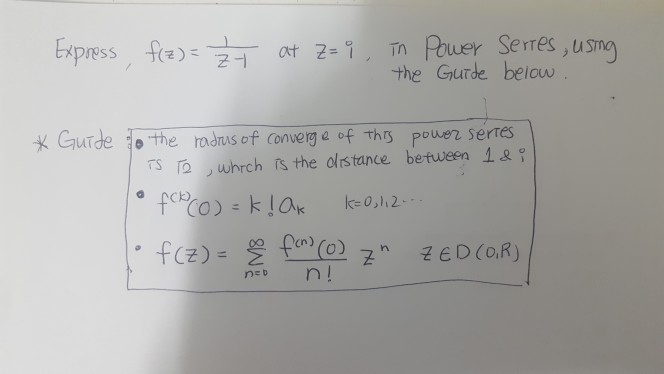 Express, f(z) = 1/(z-1) at z=i, in Power Series, using
the Guide below.
* Guide : • the radius of converge of this power series
is √2, which is the distance between 1 & i
• f^(k)(0) = k! a_k k=0,1,2...
• f(z) = ∑_{n=0}^{∞} f^(n)(0)/n! z^n z∈D(0,R)